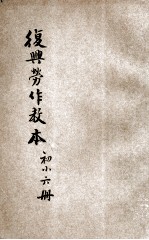 復興勞作教本
初小六册